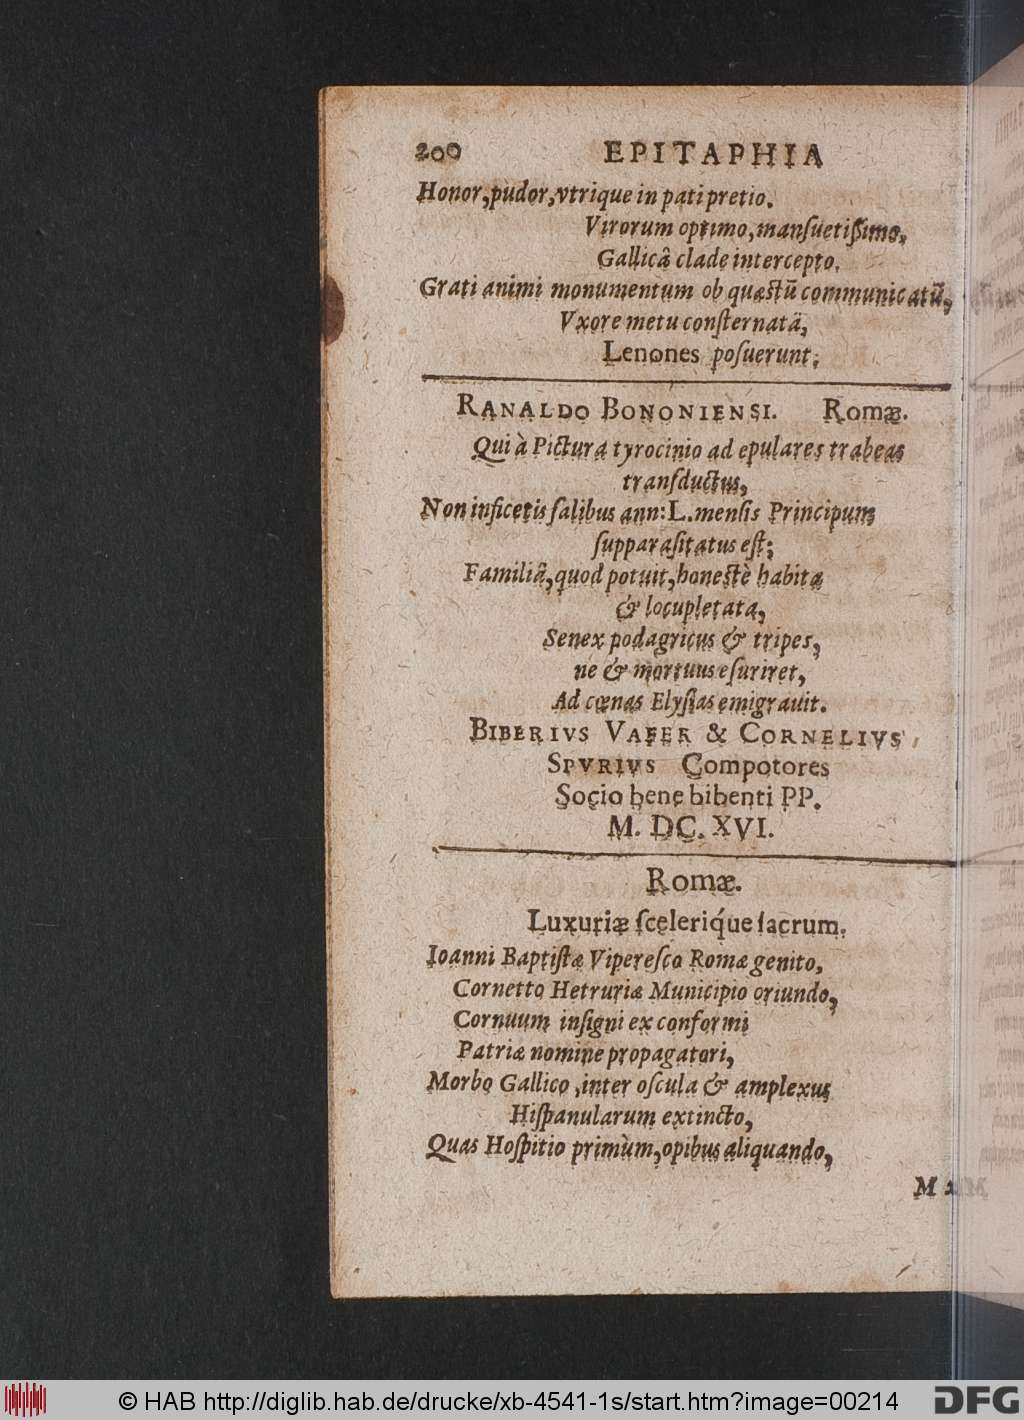 200 EPITAPHIA
Honor, pudor, vtrique in pati pretio.
Virorum optimo, manſuetiſſimo,
Gallicâ clade intercepto,
Grati animi monumentum ob quæſtũ communicatũ,
Vxore metu conſternatâ,
Lenones poſuerunt.
RANALDO BONONIENSI. Romæ.
Qui à Pictura tyrocinio ad epulares trabeas
tranſductus,
Non inficetis ſalibus ann: L. menſis Principum
ſupparaſitatus eſt;
Familiâ, quod potuit, honeſtè habita
& locupletata,
Senex podagricus & tripes,
ne & mortuus eſuriret,
Ad cœnas Elyſias emigrauit.
BIBERIVS VAFER & CORNELIVS
SPVRIVS Compotores
Socio bene bibenti PP.
M. DC. XVI.
Romæ.
Luxuriæ ſceleriq́ue ſacrum.
Ioanni Baptiſtæ Vipereſco Romæ genito,
Cornetto Hetruriæ Municipio oriundo,
Cornuum inſigni ex conformi
Patriæ nomine propagatori,
Morbo Gallico, inter oſcula & amplexus
Hiſpanularum extincto,
Quas Hoſpitio primùm, opibus aliquando,
© HAB http://diglib.hab.de/drucke/xb-4541-1s/start.htm?image=00214
DFG